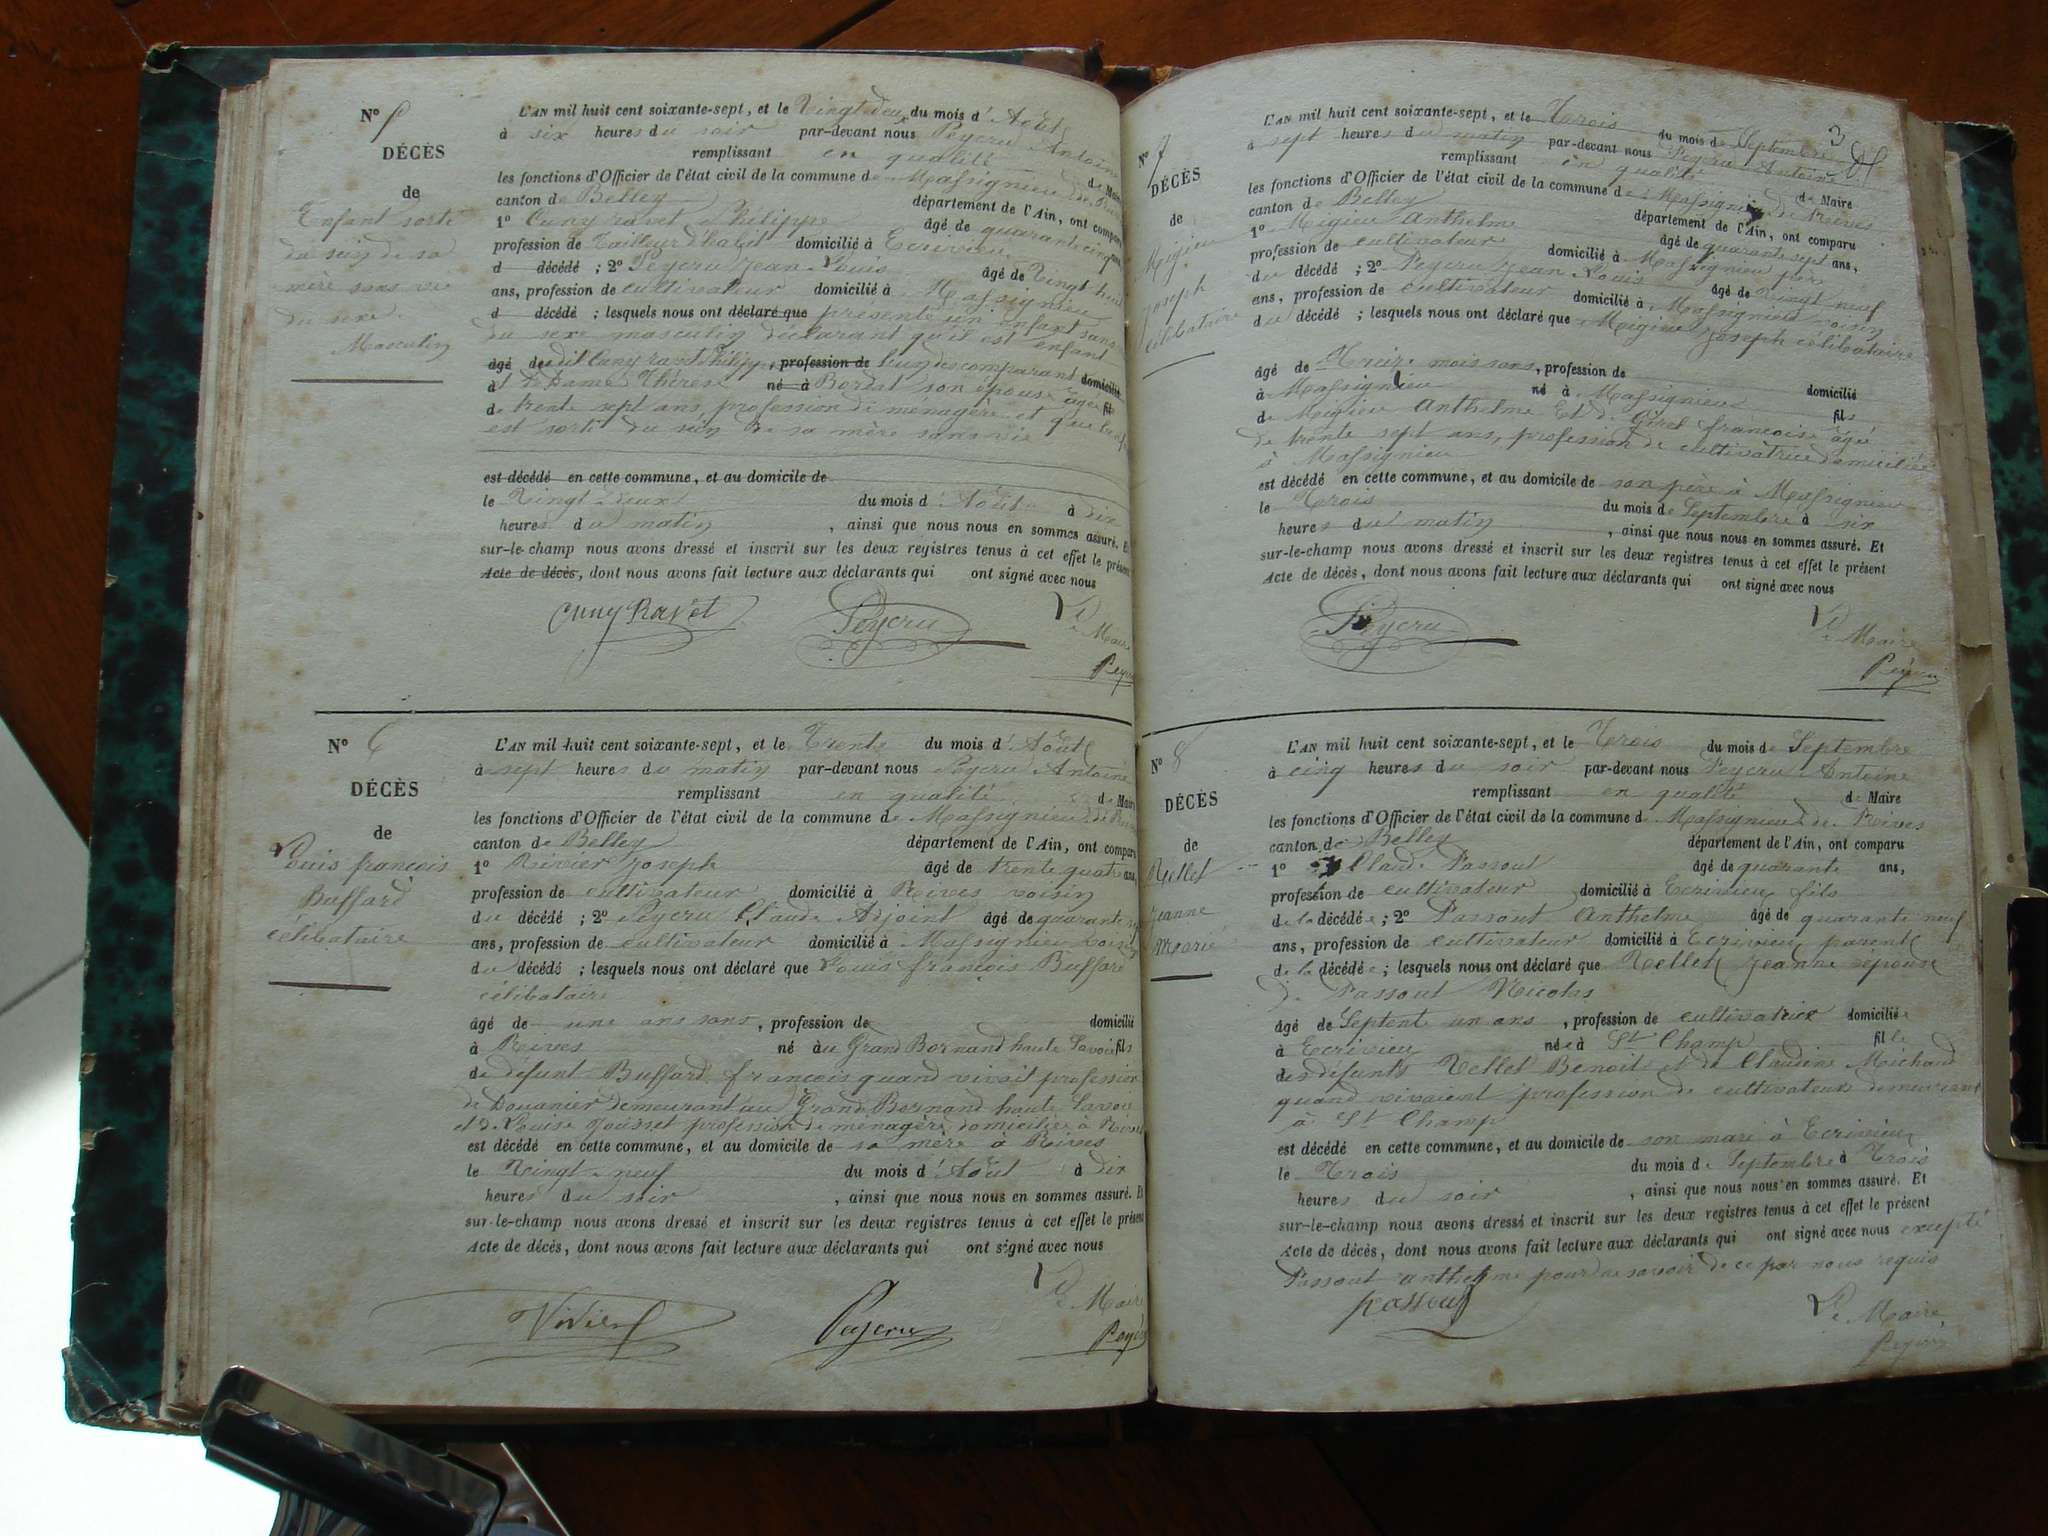 N° 5
DÉCÈS
de
Enfant sorti
du sein de sa
mère sans vie
du sexe
Masculin
L'AN mil huit cent soixante-sept, et le Vingt deux du mois d'Août
à six heures du soir par-devant nous Peycru Antoine
remplissant en qualité de Maire
les fonctions d'Officier de l'état civil de la commune de Massignieu de Rives
canton de Belley département de l'Ain, ont comparu
1° Cuny ravet Philippe âgé de quarante cinq ans,
profession de Tailleur d'habit domicilié à Ecrivieu
d décédé ; 2° Peycru Jean Louis âgé de Vingt huit
ans, profession de cultivateur domicilié à Massignieu
d décédé ; lesquels nous ont déclaré que présenté un enfant sans
du sexe masculin déclarant qu'il est enfant
âgé de dit Cuny ravet Philippe, profession de l'un des comparant domicilié
à et de Dame Thérèse né à Bordet son épouse âgée fil
de trente sept ans, profession de ménagère et que
est sorti du sein de sa mère sans vie
est décédé en cette commune, et au domicile de
le Vingt deux du mois d'Août à dix
heures du matin, ainsi que nous nous en sommes assuré. Et
sur-le-champ nous avons dressé et inscrit sur les deux registres tenus à cet effet le présent
Acte de décès, dont nous avons fait lecture aux déclarants qui ont signé avec nous
Cuny Ravet Peycru Le Maire
Peycru
N° 6
DÉCÈS
de
Louis françois
Buffard
célibataire
L'AN mil huit cent soixante-sept, et le Trente du mois d'Août
à sept heures du matin par-devant nous Peycru Antoine
remplissant en qualité de Maire
les fonctions d'Officier de l'état civil de la commune de Massignieu de Rives
canton de Belley département de l'Ain, ont comparu
1° Rivier Joseph âgé de trente quatre ans,
profession de cultivateur domicilié à Rives voisin
du décédé ; 2° Peycru Claude Adjoint âgé de quarante
ans, profession de cultivateur domicilié à Massignieu voisin
du décédé ; lesquels nous ont déclaré que Louis françois Buffard
célibataire
âgé de une ans sans, profession de domicilié
à Rives né au Grand Bornand haute Savoie fils
de défunt Buffard françois quand vivait profession
de Douanier demeurant au Grand Bornand haute Savoie
et de Louise Jousset profession de ménagère domiciliée à Rives
est décédé en cette commune, et au domicile de sa mère à Rives
le Vingt neuf du mois d'Août à dix
heures du soir, ainsi que nous nous en sommes assuré. Et
sur-le-champ nous avons dressé et inscrit sur les deux registres tenus à cet effet le présent
Acte de décès, dont nous avons fait lecture aux déclarants qui ont signé avec nous
Peycru Le Maire
Peycru
3
N° 7
DÉCÈS
de
Migieu
Joseph
célibataire
L'AN mil huit cent soixante-sept, et le Trois du mois de Septembre
à sept heures du matin par-devant nous Peycru Antoine
remplissant en qualité de Maire
les fonctions d'Officier de l'état civil de la commune de Massignieu de Rives
canton de Belley département de l'Ain, ont comparu
1° Migieu Anthelme âgé de quarante sept ans,
profession de cultivateur domicilié à Massignieu père
du décédé ; 2° Peycru Jean Louis âgé de Vingt neuf
ans, profession de cultivateur domicilié à Massignieu voisin
du décédé ; lesquels nous ont déclaré que Migieu Joseph célibataire
âgé de Treize mois sans, profession de domicilié
à Massignieu né à Massignieu fils
de Migieu Anthelme Et de Girel françoise âgé
de trente sept ans, profession de cultivatrice domiciliée
à Massignieu
est décédé en cette commune, et au domicile de son père à Massignieu
le Trois du mois de Septembre à six
heures du matin, ainsi que nous nous en sommes assuré. Et
sur-le-champ nous avons dressé et inscrit sur les deux registres tenus à cet effet le présent
Acte de décès, dont nous avons fait lecture aux déclarants qui ont signé avec nous
Peycru Le Maire
Peycru
N° 8
DÉCÈS
de
Vellet
Jeanne
Marie
L'AN mil huit cent soixante-sept, et le Trois du mois de Septembre
à cinq heures du soir par-devant nous Peycru Antoine
remplissant en qualité de Maire
les fonctions d'Officier de l'état civil de la commune d Massignieu de Rives
canton de Belley département de l'Ain, ont comparu
1° Claude Passout âgé de quarante ans,
profession de cultivateur domicilié à Ecrivieu fils
de la décédée ; 2° Passout Anthelme âgé de quarante neuf
ans, profession de cultivateur domicilié à Ecrivieu parent
de la décédée ; lesquels nous ont déclaré que Vellet Jeanne épouse
de Passout Nicolas
âgé de Septent un ans, profession de cultivatrice domiciliée
à Ecrivieu née à St Champ fille
des défunts Vellet Benoit et de Claudine Michaud
quand vivaient profession de cultivateurs demeurant
à St Champ
est décédé en cette commune, et au domicile de son mari à Ecrivieu
le Trois du mois de Septembre à Trois
heures du soir, ainsi que nous nous en sommes assuré. Et
sur-le-champ nous avons dressé et inscrit sur les deux registres tenus à cet effet le présent
Acte de décès, dont nous avons fait lecture aux déclarants qui ont signé avec nous excepté
Passout Anthelme pour ne savoir de ce par nous requis
Passout Le Maire
Peycru